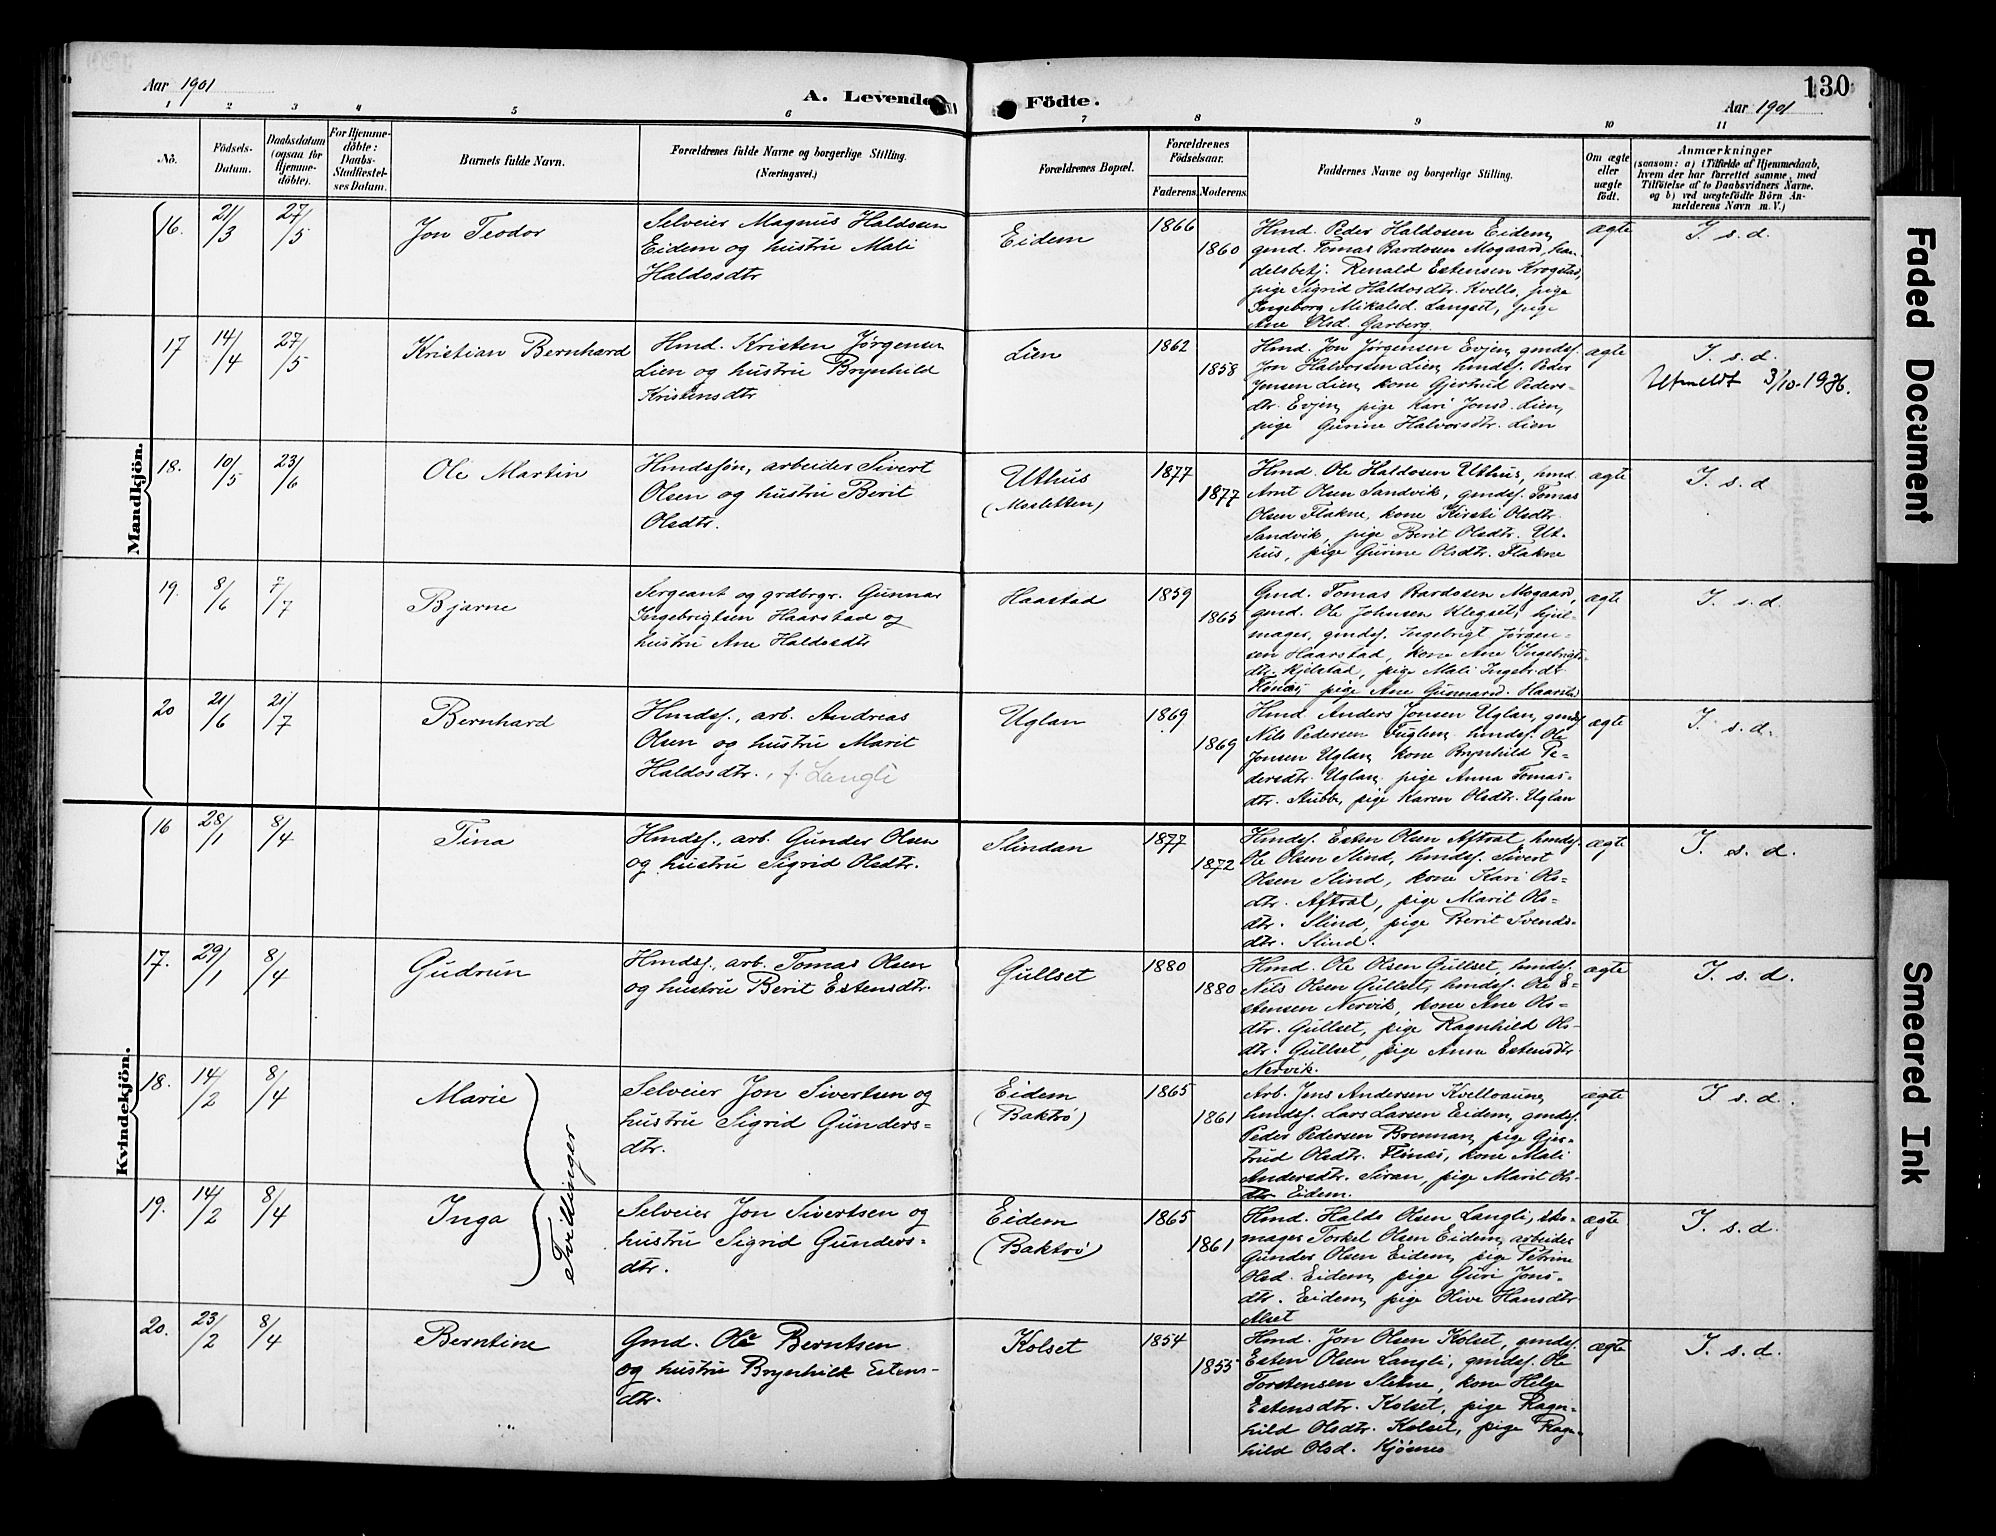 Aar 1901
A. Levende Födte.
130
Aar 1901
1 2 3 4 5 6 7 8 9 10 11
No.
Födsels-Datum.
Daabsdatum (ogsaa for Hjemmedöbte).
For Hjemmedöbte: Daabs-Stadfæstelses Datum.
Barnets fulde Navn.
Forældrenes fulde Navne og borgerlige Stilling. (Næringsvei.)
Forældrenes Bopæl.
Forældrenes Födselsaar.
Faderens. Moderens.
Faddernes Navne og borgerlige Stilling.
Om ægte eller uægte födt.
Anmærkninger
(saasom: a) i Tilfælde af Hjemmedaab, hvem der har forrettet samme, med Tilföielse af to Daabsvidners Navne. og b) ved uægtefödte Börn Anmelderens Navn m. V.)
Mandkjön.
16. 21/3 27/5 Jon Teodor
Selveier Magnus Haldosen
Eidem og hustru Mali
Haldosdtr
Eidem 1866 1860
Hmd. Peder Haldosen Eidem,
gmd. Tomas Bardosen Mogaard, han-
delsbetj. Renald Estensen Krogstad,
pige Sigrid Haldosdtr. Kvello, pige
Ingeborg Mikalsd. Langset, pige
Ane Olsd. Garberg.
ægte I. s. d.
17 14/4 27/5 Kristian Bernhard
Hmd. Kristen Jørgensen
Lien og hustru Brynhild
Kristensdtr
Lien 1862 1858
Hmd. Jon Jørgensen Evjen, gmdsf.
Jon Halvorsen Lien, hmdsf. Peder
Jensen Lien, kone Gjertrud Peders-
dtr. Evjen, pige Kari Jonsd. Lien,
pige Gurine Halvorsdtr. Lien
ægte I. s. d.
Utmeldt 3/10-1936.
18. 10/5 23/6 Ole Martin
Hmdssøn, arbeider Sivert
Olsen og hustru Berit
Olsdtr.
Uthus
(Mosletten)
1877 1877
Hmd. Ole Haldosen Uthus, hmd.
Arnt Olsen Sandvik, gmdsf. Tomas
Olsen Flakne, kone Kirsti Olsdtr.
Sandvik, pige Berit Olsdtr. Ut-
hus, pige Gurine Olsdtr. Flakne
ægte I. s. d
19. 8/6 7/7 Bjarne
Sergeant og grdbrgr. Gunnar
Ingebrigtsen Haarstad og
hustru Ane Haldosdtr
Haastad 1859 1865
Gmd. Tomas Bardosen Mogaard,
gmd. Ole Johnsen Klegset, hjul-
mager, gmdsf. Ingebrigt Jørgen-
sen Haarstad, kone Ane Ingebrigts-
dtr. Kjelstad, pige Mali Ingebr.dtr
pige Ane Gunnarsd. Haarstad
ægte I. s. d.
20 21/6 21/7 Bernhard
Hmdsf., arb. Andreas
Olsen og hustru Marit
Haldosdtr., f. Langli
Uglan 1869 1869
Hmd. Anders Jonsen Uglan, gmdsf
Nils Pedersen Fuglem, hmdsf. Ole
Jonsen Uglan, kone Brynhild Pe-
dersdtr. Uglan, pige Anna Tomas-
dtr. Stubbe, pige Karen Olsdtr. Uglan
ægte I. s. d.
Kvindekjön.
16 28/1 8/4 Tina
Hmdsf., arb. Gunder Olsen
og hustru Sigrid Olsdtr.
Slindan 1877 1872
Hmdsf. Esten Olsen Aftret, hmdsf.
Ole Olsen Slind, hmdsf. Sivert
Olsen Slind, kone Kari Ols-
dtr. Aftret, pige Marit Ols-
dtr. Slind, pige Berit Svends-
dtr. Slind.
ægte I. s. d.
17. 29/1 8/4 Gudrun
Hmdsf., arb. Tomas Olsen
og hustru Berit Estensdtr.
Gullset 1880 1880
Hmd. Ole Olsen Gullset, hmdsf.
Nils Olsen Gullset, hmdsf. Ole E-
stensen Nervik, kone Ane Ols-
dtr. Gullset, pige Ragnhild Ols-
dtr. Gullset, pige Anna Estensdtr
Nervik.
ægte I. s. d.
18. 14/2 8/4 Marie
Tvillinger
Selveier Jon Sivertsen og
hustru Sigrid Gunders-
dtr.
Eidem
(Baktrø)
1865 1861
Arb. Jens Andersen Kvelloaune,
hmdsf. Lars Larsen Eidem, gmdsf.
Peder Pedersen Brennan, pige Gjer-
trud Olsdtr. Flønæs, kone Mali
Andersdtr. Siran, pige Marit Ols-
dtr Eidem.
ægte I. s. d.
19. 14/2 8/4 Inga
Selveier Jon Sivertsen og
hustru Sigrid Gunders-
dtr.
Eidem
(Baktrø)
1865 1861
Hmd. Haldo Olsen Langli, sko-
mager Torkel Olsen Eidem, arbeider
Gunder Olsen Eidem, pige Petrine
Olsd. Eidem, pige Guri Jons-
dtr. Eidem, pige Olive Hansdtr
Alset
ægte I. s. d.
20. 23/2 8/4 Berntine
Gmd. Ole Berntsen
og hustru Brynhild Estens-
dtr.
Kolset 1854 1855
Hmd. Jon Olsen Kolset, gmdsf.
Esten Olsen Langli, gmdsf. Ole
Torstensen Sletne, kone Helge
Estensdtr. Kolset, pige Ragn-
hild Olsdtr. Kolset, pige Ragn-
hild Olsd. Kjøsnes
ægte I. s. d.
Faded Document
Smeared Ink